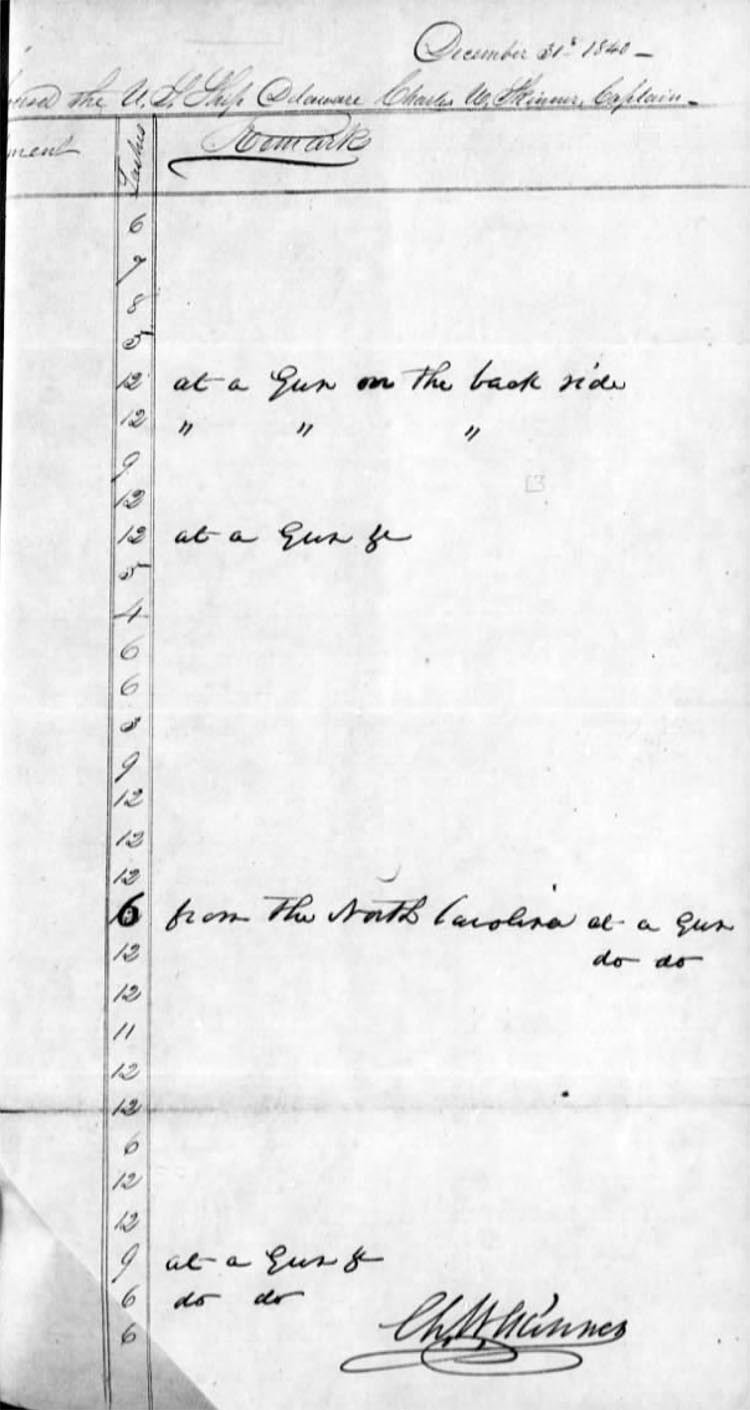 December 31st 1840 —
the U. S. Ship Delaware Charles W. Skinner, Captain
ment Lashes Remark
6
7
8
5
12 at a Gun on the back side
12 " " "
9
12
12 at a Gun &c
5
4
6
6
8
9
12
12
12
6 from the North Carolina at a Gun
12 do do
12
11
12
12
6
12
12
9 at a Gun &c
6 do do
6
Ch. W. Skinner